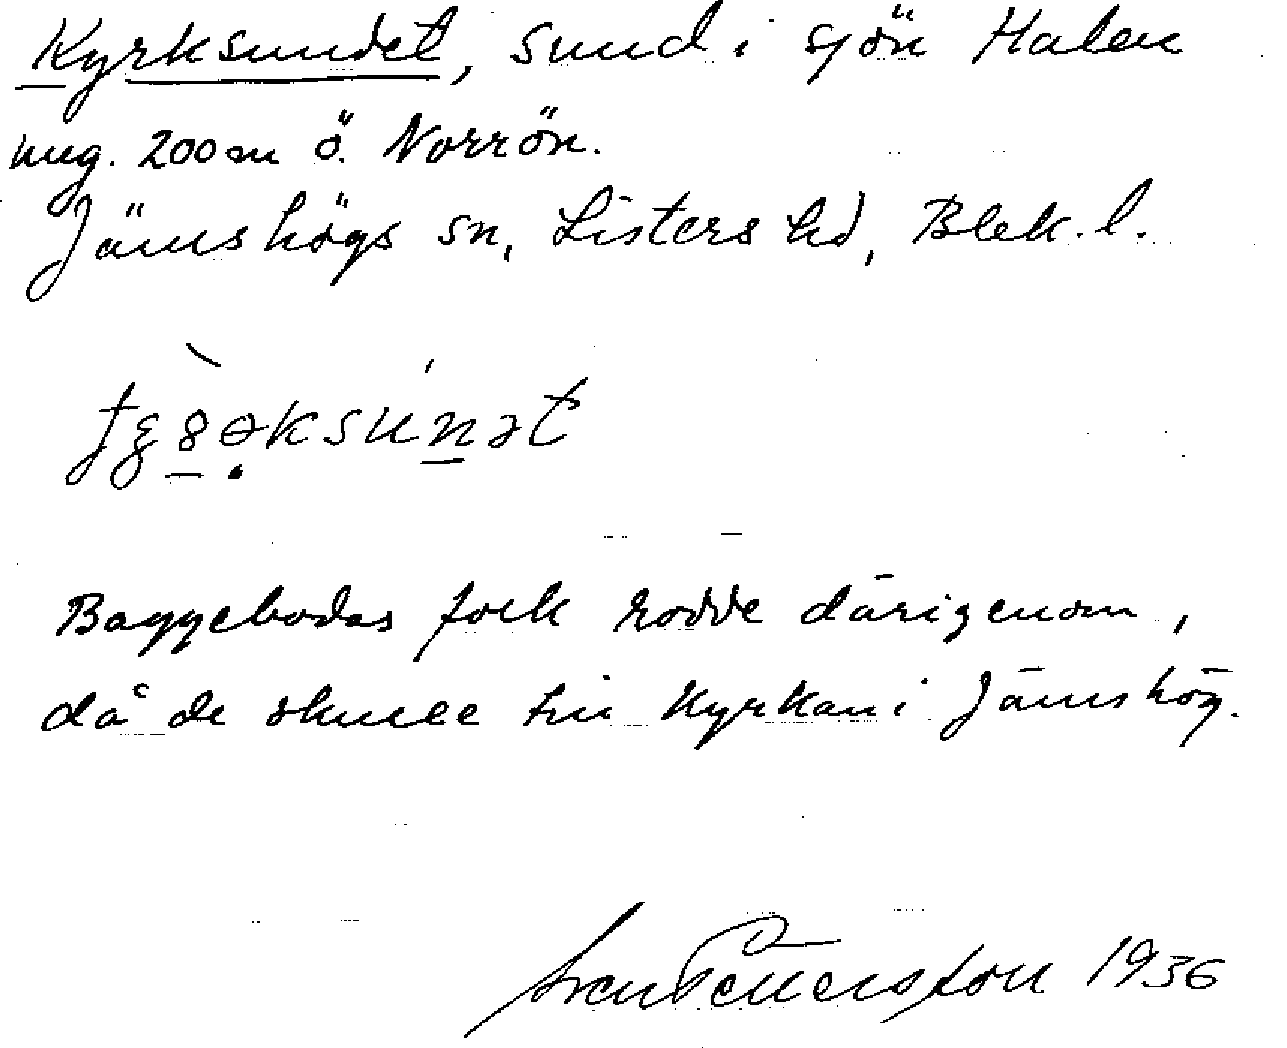 Kyrksundet, sund i sjön Halen
ung. 200 m ö. Norrön.
Jämshögs sn, Listers hd, Blek. l.
Baggebodas folk rodde därigenom,
då de skulle till kyrkan i Jämshög.
Sven Petersson 1936